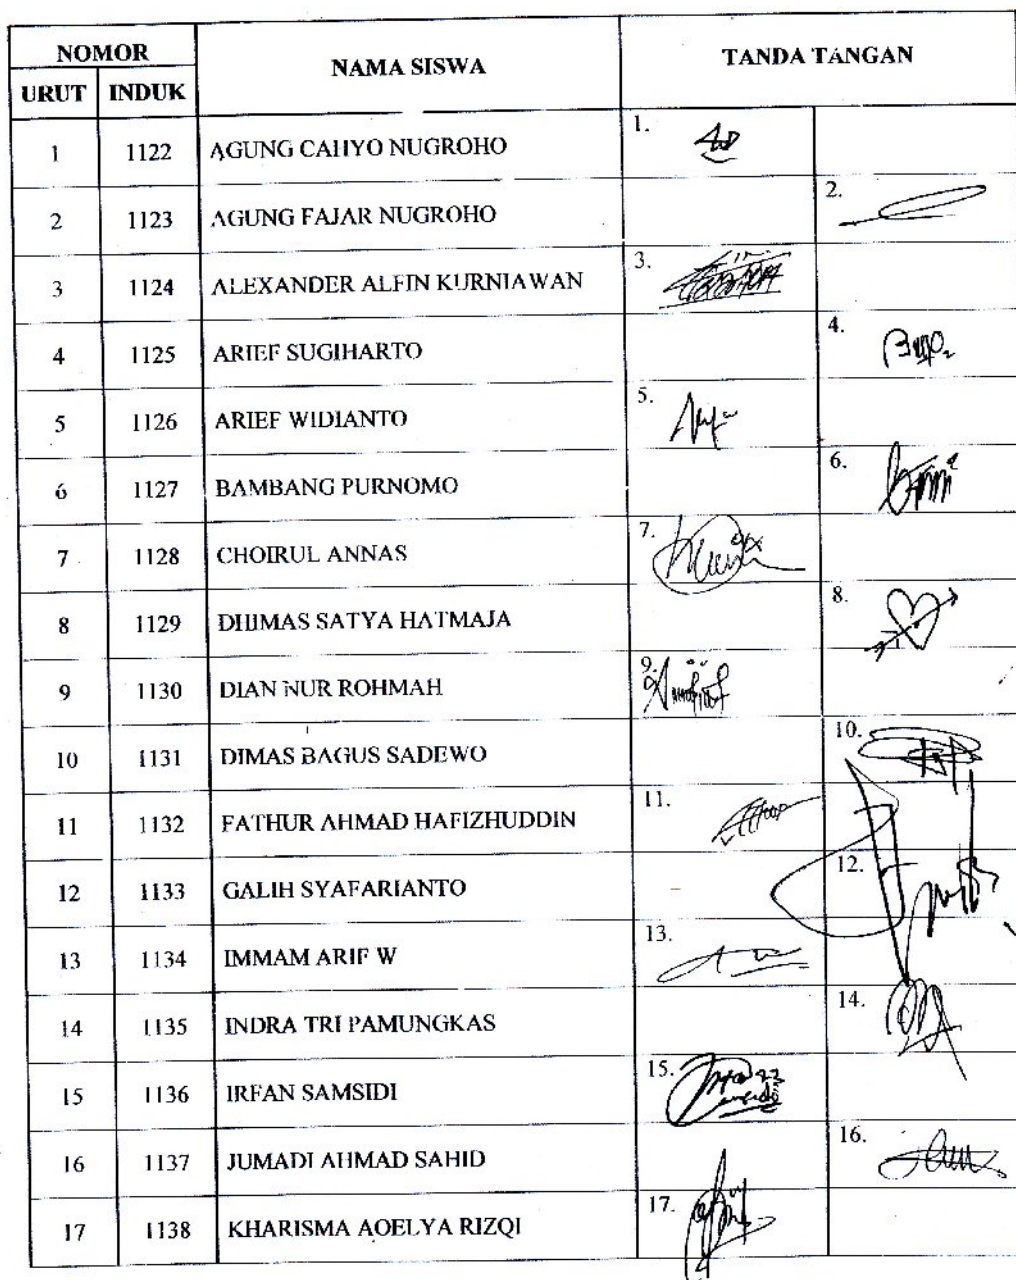 NOMOR NAMA SISWA TANDA TANGAN
URUT INDUK
1 1122 AGUNG CAHYO NUGROHO 1.
2 1123 AGUNG FAJAR NUGROHO 2.
3 1124 ALEXANDER ALFIN KURNIAWAN 3.
4 1125 ARIEF SUGIHARTO 4.
5 1126 ARIEF WIDIANTO 5.
6 1127 BAMBANG PURNOMO 6.
7 1128 CHOIRUL ANNAS 7.
8 1129 DHIMAS SATYA HATMAJA 8.
9 1130 DIAN NUR ROHMAH 9.
10 1131 DIMAS BAGUS SADEWO 10.
11 1132 FATHUR AHMAD HAFIZHUDDIN 11.
12 1133 GALIH SYAFARIANTO 12.
13 1134 IMMAM ARIF W 13.
14 1135 INDRA TRI PAMUNGKAS 14.
15 1136 IRFAN SAMSIDI 15.
16 1137 JUMADI AHMAD SAHID 16.
17 1138 KHARISMA AOELYA RIZQI 17.